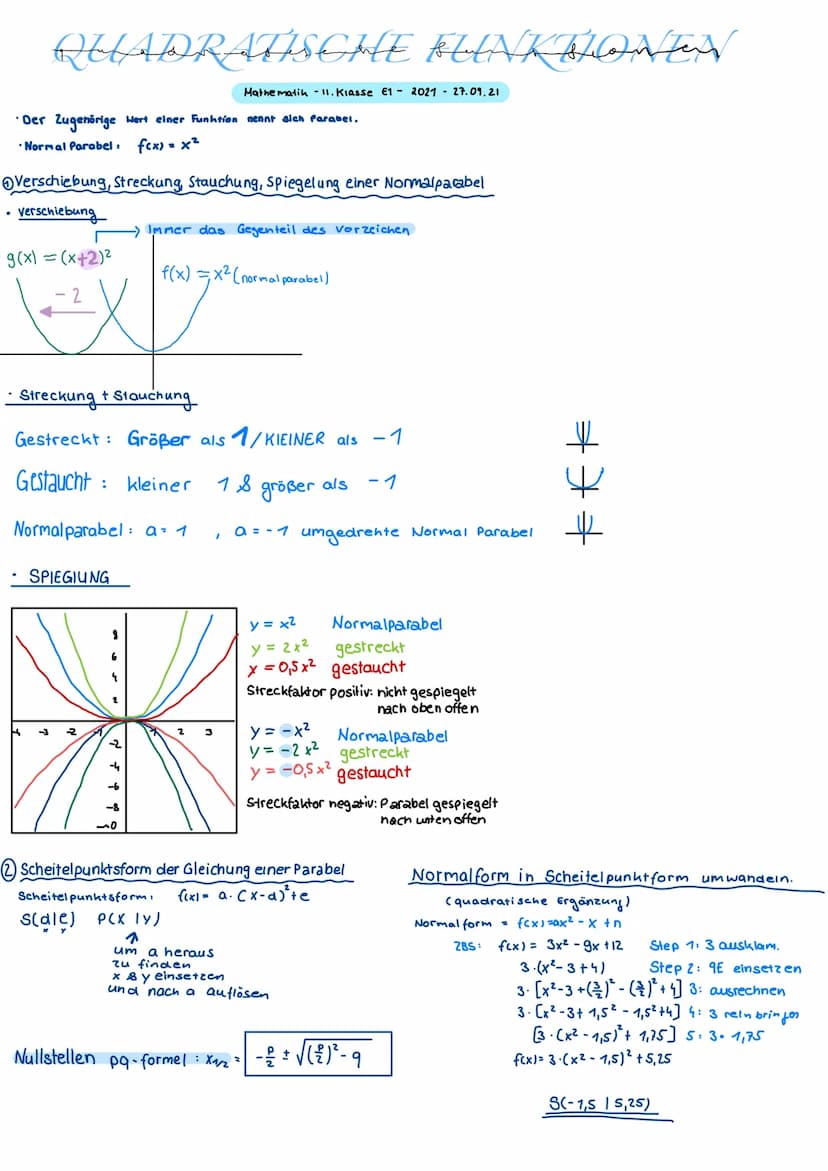 QUADRATISCHE FUNKTIONEN
Mathematik - 11. Klasse E1 - 2021 - 27.09.21
· Der Zugehörige Wert einer Funktion nennt sich Parabel.
· Normal Parabel: f(x) = x²
① Verschiebung, Streckung, Stauchung, Spiegelung einer Normalparabel
· Verschiebung
Immer das Gegenteil des Vorzeichen
g(x) = (x+2)²
f(x) = x² (normalparabel)
- 2
· Streckung + Stauchung
Gestreckt: Größer als 1/KlEINER als -1
Gestaucht: kleiner 1 & größer als -1
Normalparabel: a = 1, a = -1 umgedrehte Normal Parabel
· SPIEGlUNG
y = x² Normalparabel
y = 2x² gestreckt
x = 0,5x² gestaucht
Streckfaktor positiv: nicht gespiegelt
nach oben offen
y = -x² Normalparabel
y = -2x² gestreckt
y = -0,5x² gestaucht
Streckfaktor negativ: Parabel gespiegelt
nach unten offen
8
6
4
2
-4 -3 -2 -1 1 2 3
-2
-4
-6
-8
-10
② Scheitelpunktsform der Gleichung einer Parabel
Scheitelpunktsform: f(x) = a · (x-d)²+e
S(d|e) P(x|y)
x y
um a heraus
zu finden
x & y einsetzen
und nach a auflösen
Nullstellen pq-formel: x1/2 = -p/2 ± √((p/2)² - q)
Normalform in Scheitelpunktform umwandeln.
(quadratische Ergänzung)
Normalform = f(x)=ax² - x + n
ZBS: f(x) = 3x² - 9x +12 Step 1: 3 ausklam.
3·(x²-3+4) Step 2: QE einsetzen
3·[x²-3+(3/2)²-(3/2)²+4] 3: ausrechnen
3·[x²-3+1,5²-1,5²+4] 4: 3 rein bringen
[3·(x²-1,5)²+1,75] 5: 3·1,75
f(x)=3·(x²-1,5)²+5,25
S(-1,5 | 5,25)